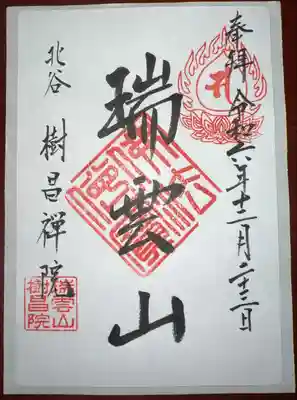 奉拝 令和六年十二月二十二日
瑞雲山
北谷 樹昌禅院
瑞雲山
樹昌院